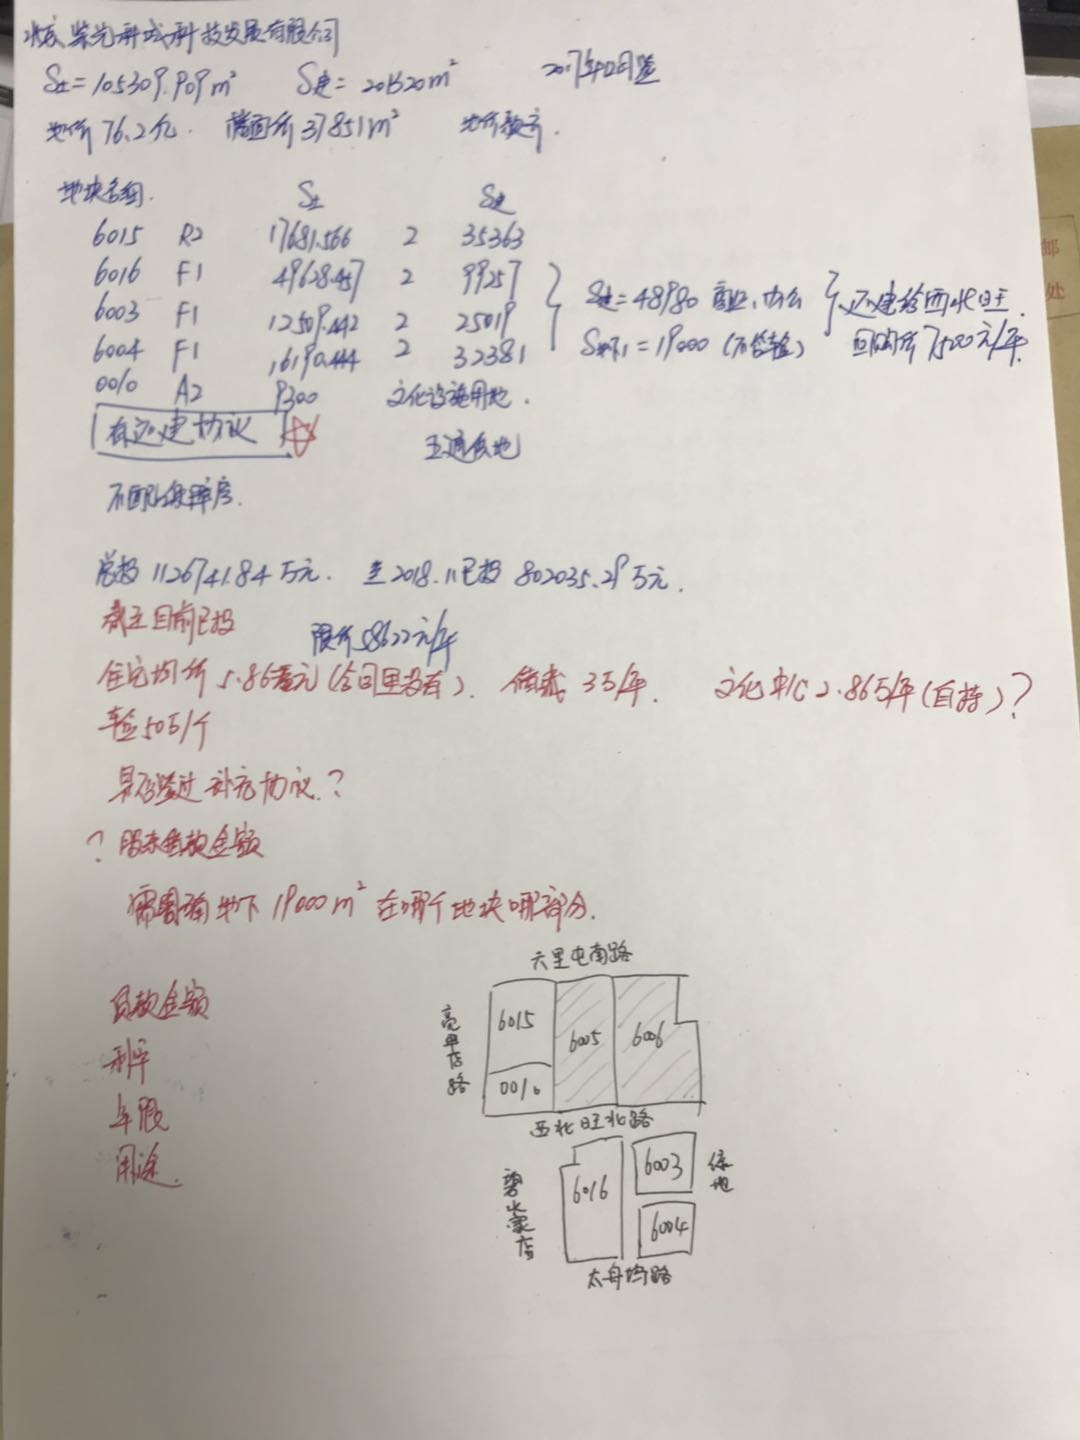 北京紫光科城科技发展有限公司
S土=105309.909m² S建=201320m² 2017年12月签
地价76.2亿. 楼面价37851m² 地价款齐.
地块名细. S土 S建
6015 R2 17681.566 2 35363
6016 F1 49628.457 2 99257
6003 F1 12509.442 2 25019
6004 F1 16190.444 2 32381
0010 A2 9300 文化设施用地.
S建=48980 商业、办公
S地下=19000(不含车位)
还建给西北旺.
回购价7500元/平.
有还建协议
五通一地
总投1126741.84万元. 至2018.11已投802035.29万元.
截至目前已投
限价58622元/平
住宅均价5.86万元(公司里没有). 3万/平. 文化中心2.86万/平(自持)?
车位50万/个
是否签过补充协议?
? 股东借款金额
需明确地下19000m²在哪个地块哪部分.
贷款金额
利率
年限
用途.
六里屯南路
亮甲店路
6015
6005
6006
0010
西北旺北路
6016
6003
绿地
6004
太舟坞路